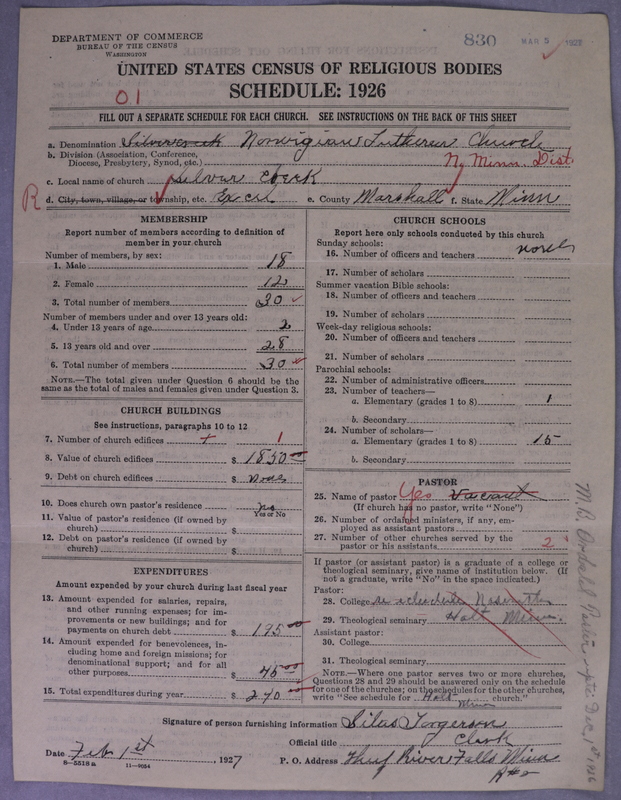 DEPARTMENT OF COMMERCE
BUREAU OF THE CENSUS
WASHINGTON
830
MAR 5 1927
UNITED STATES CENSUS OF RELIGIOUS BODIES
SCHEDULE: 1926
01
FILL OUT A SEPARATE SCHEDULE FOR EACH CHURCH. SEE INSTRUCTIONS ON THE BACK OF THIS SHEET
a. Denomination Norwigian Lutheran Church
b. Division (Association, Conference, Diocese, Presbytery, Synod, etc.) N. Minn. Dist.
c. Local name of church Silver
R d. City, town, village, or township, etc. Excel e. County Marshall f. State Minn
MEMBERSHIP
Report number of members according to definition of
member in your church
Number of members, by sex:
1. Male 18
2. Female 12
3. Total number of members 30
Number of members under and over 13 years old:
4. Under 13 years of age 2
5. 13 years old and over 28
6. Total number of members 30
NOTE.—The total given under Question 6 should be the
same as the total of males and females given under Question 3.
CHURCH BUILDINGS
See instructions, paragraphs 10 to 12
7. Number of church edifices 1
8. Value of church edifices $ 1850 00
9. Debt on church edifices $ None
10. Does church own pastor's residence? no
Yes or No
11. Value of pastor's residence (if owned by
church) $
12. Debt on pastor's residence (if owned by
church) $
EXPENDITURES
Amount expended by your church during last fiscal year
13. Amount expended for salaries, repairs,
and other running expenses; for im-
provements or new buildings; and for
payments on church debt $ 195 00
14. Amount expended for benevolences, in-
cluding home and foreign missions; for
denominational support; and for all
other purposes $ 45 00
15. Total expenditures during year $ 240 00
CHURCH SCHOOLS
Report here only schools conducted by this church
Sunday schools:
16. Number of officers and teachers none
17. Number of scholars
Summer vacation Bible schools:
18. Number of officers and teachers
19. Number of scholars
Week-day religious schools:
20. Number of officers and teachers
21. Number of scholars
Parochial schools:
22. Number of administrative officers
23. Number of teachers—
a. Elementary (grades 1 to 8) 1
b. Secondary
24. Number of scholars—
a. Elementary (grades 1 to 8) 15
b. Secondary
PASTOR
25. Name of pastor Yes Vaccant
(If church has no pastor, write "None")
26. Number of ordained ministers, if any, em-
ployed as assistant pastors
27. Number of other churches served by the
pastor or his assistants 2
If pastor (or assistant pastor) is a graduate of a college or
theological seminary, give name of institution below. (If
not a graduate, write "No" in the space indicated.)
Pastor:
28. College schedule
29. Theological seminary Holt Minn.
Assistant pastor:
30. College
31. Theological seminary
NOTE.—Where one pastor serves two or more churches,
Questions 28 and 29 should be answered only on the schedule
for one of the churches; on the schedules for the other churches,
write "See schedule for Holt Minn church."
Signature of person furnishing information Silas Torgerson
Official title Clerk
Date Feb 1st, 1927 P. O. Address Thief River Falls Minn
R#2
8-5518 a 11-9654